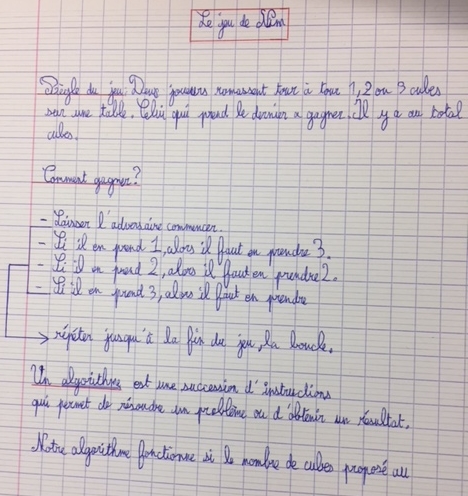 Le jeu de Nim
Règle du jeu: Deux joueurs ramassent tour à tour 1, 2 ou 3 cubes
sur une table. Celui qui prend le dernier a gagner. Il y a au total
cubes.
Comment gagner?
- Laisser l'adversaire commencer.
- Si il en prend 1, alors il faut en prendre 3.
- Si il en prend 2, alors il faut en prendre 2.
- Si il en prend 3, alors il faut en prendre
répéter jusqu'à la fin du jeu, la boucle.
Un algorithme est une succession d'instructions
qui permet de résoudre un problème ou d'obtenir un résultat.
Notre algorithme fonctionne si le nombre de cubes proposé au